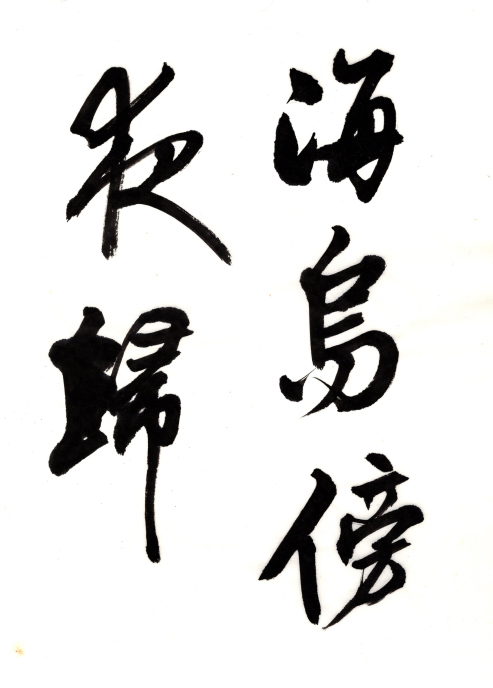 海鳥傍
夜歸